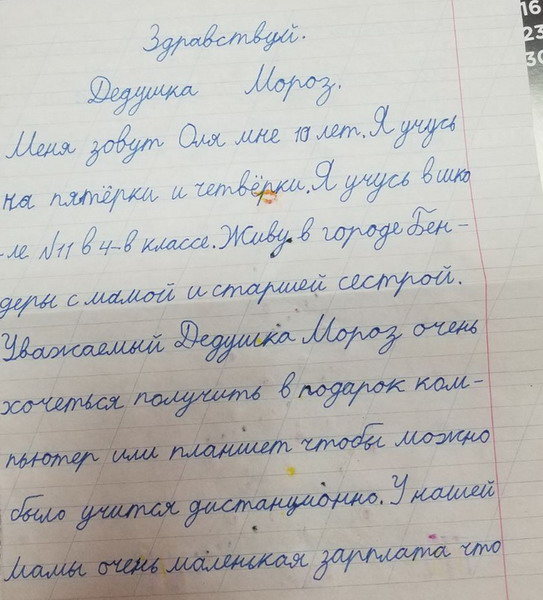 Здравствуй.
Дедушка Мороз.
Меня зовут Оля мне 10 лет. Я учусь
на пятёрки и четвёрки. Я учусь в шко
-ле №11 в 4-в классе. Живу в городе Бен-
деры с мамой и старшей сестрой.
Уважаемый Дедушка Мороз очень
хочеться получить в подарок ком-
пьютер или планшет чтобы можно
было учится дистанционно. У нашей
мамы очень маленькая зарплата что
16
23
30